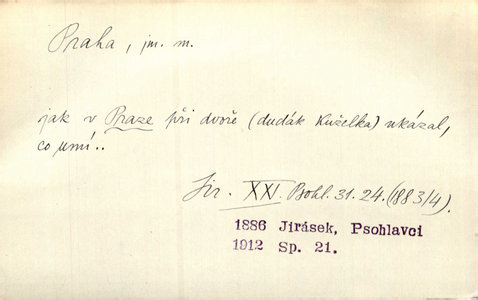 Praha, jm. m.
jak v Praze při dvoře (dudák Kuželka) ukázal,
co umí..
Jir. XXI. Bohl. 31. 24. (1883/4).
1886 Jirásek, Psohlavci
1912 Sp. 21.